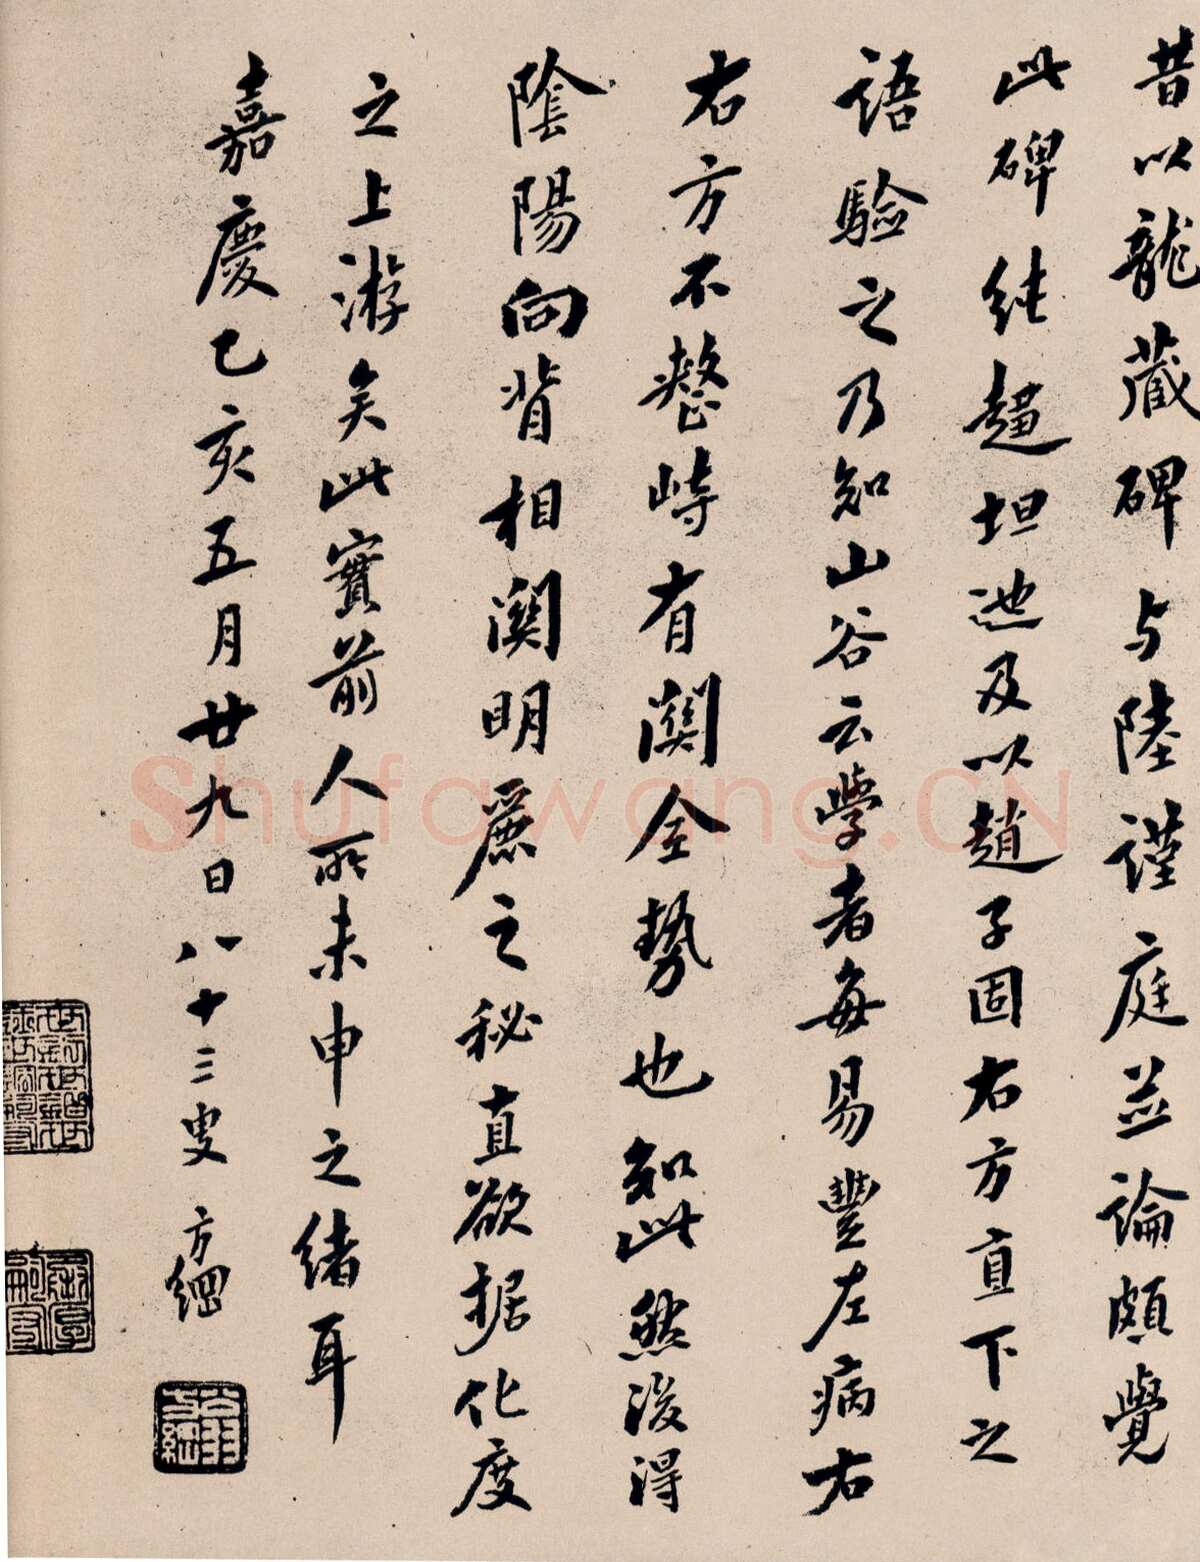 昔以龍藏碑与陸謹庭並論頗覺
此碑純趨坦迆及以趙子固右方直下之
語驗之乃知山谷云學者每易豐左病右
右方不整峙有關全勢也如此然後得
陰陽向背相關明麗之秘直欲据化度
之上游矣此實前人所未申之緒耳
嘉慶乙亥五月廿九日八十三叟方綱
翁方綱
Shufawang.CN